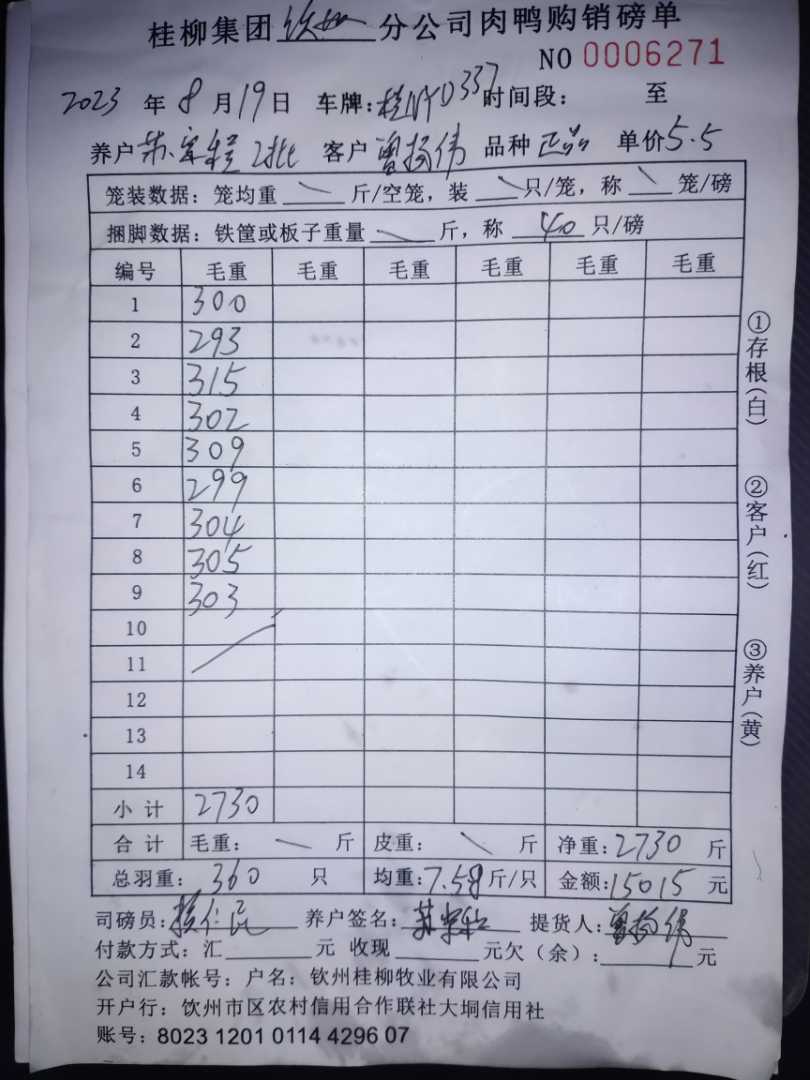 桂柳集团 钦州 分公司肉鸭购销磅单
NO 0006271
2023 年 8 月 19 日 车牌: 桂N 0337 时间段: 至
养户 2批 客户 曾扬伟 品种 正品 单价 5.5
笼装数据: 笼均重 斤/空笼, 装 只/笼, 称 笼/磅
捆脚数据: 铁筐或板子重量 斤, 称 40 只/磅
编号 毛重 毛重 毛重 毛重 毛重 毛重
1 300
2 293
3 315
4 302
5 309
6 299
7 304
8 305
9 303
10
11
12
13
14
小计 2730
合计 毛重: 斤 皮重: 斤 净重: 2730 斤
总羽重: 360 只 均重: 7.58 斤/只 金额: 15015 元
司磅员: 养户签名: 提货人: 曾扬伟
付款方式: 汇 元 收现 元欠(余): 元
公司汇款帐号: 户名: 钦州桂柳牧业有限公司
开户行: 饮州市区农村信用合作联社大垌信用社
账号: 8023 1201 0114 4296 07
①存根(白)
②客户(红)
③养户(黄)